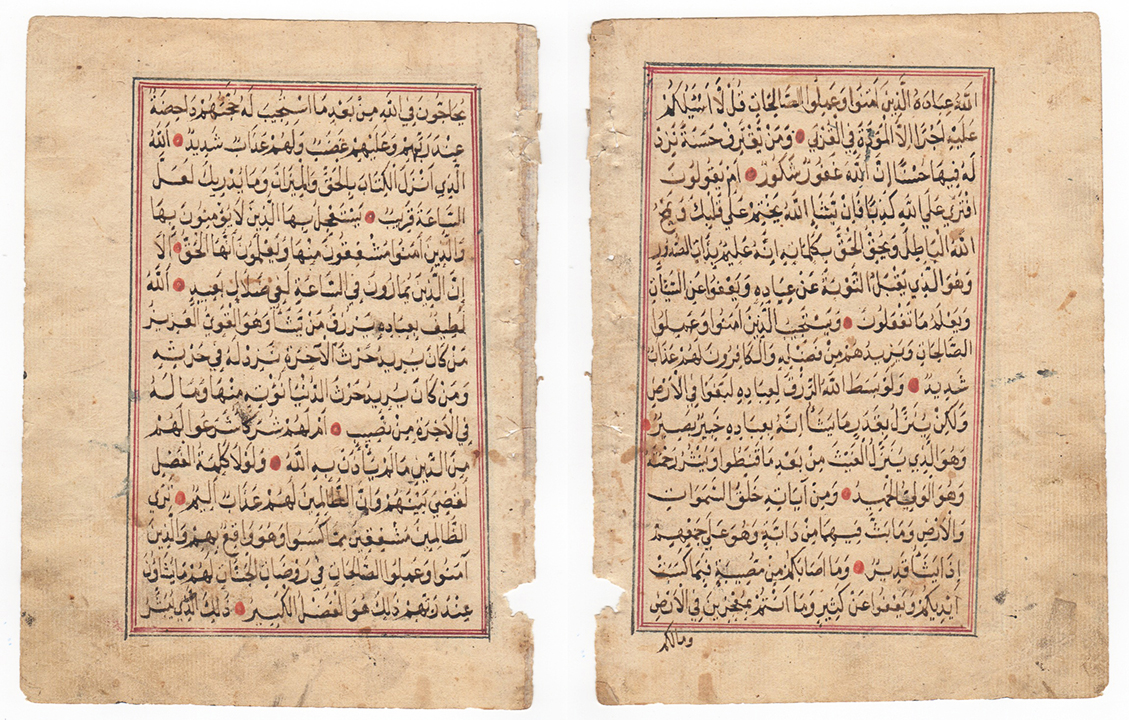 يحاجون في الله من بعد ما استجيب له حجتهم داحضة
عند ربهم وعليهم غضب ولهم عذاب شديد الله
الذي انزل الكتاب بالحق والميزان وما يدريك لعل
الساعة قريب يستعجل بها الذين لا يؤمنون بها
والذين امنوا مشفقون منها ويعلمون انها الحق الا
ان الذين يمارون في الساعة لفي ضلال بعيد الله
لطيف بعباده يرزق من يشاء وهو القوي العزيز
من كان يريد حرث الآخرة نزد له في حرثه
ومن كان يريد حرث الدنيا نؤته منها وما له
في الآخرة من نصيب ام لهم شركاء شرعوا لهم
من الدين ما لم يأذن به الله ولولا كلمة الفصل
لقضي بينهم وان الظالمين لهم عذاب اليم تري
الظالمين مشفقين مما كسبوا وهو واقع بهم والذين
آمنوا وعملوا الصالحات في روضات الجنات لهم ما يشاؤن
عند ربهم ذلك هو الفضل الكبير ذلك الذي يبشر
الله عباده الذين امنوا وعملوا الصالحات قل لا اسئلكم
عليه اجرا الا المودة في القربي ومن يقترف حسنة نزد
له فيها حسنا ان الله غفور شكور ام يقولون
افتري علي الله كذبا فان يشاء الله يختم علي قلبك ويمح
الله الباطل ويحق الحق بكلماته انه عليم بذات الصدور
وهو الذي يقبل التوبة عن عباده ويعفوا عن السيئات
ويعلم ما تفعلون ويستجيب الذين امنوا وعملوا
الصالحات ويزيدهم من فضله والكافرون لهم عذاب
شديد ولو بسط الله الرزق لعباده لبغوا في الارض
ولكن ينزل بقدر ما يشاء انه بعباده خبير بصير
وهو الذي ينزل الغيث من بعد ما قنطوا وينشر رحمته
وهو الولي الحميد ومن آياته خلق السموات
والارض وما بث فيهما من دابة وهو علي جمعهم
اذا يشاء قدير وما اصابكم من مصيبة فبما كسبت
ايديكم ويعفوا عن كثير وما انتم بمعجزين في الارض
ومالكم